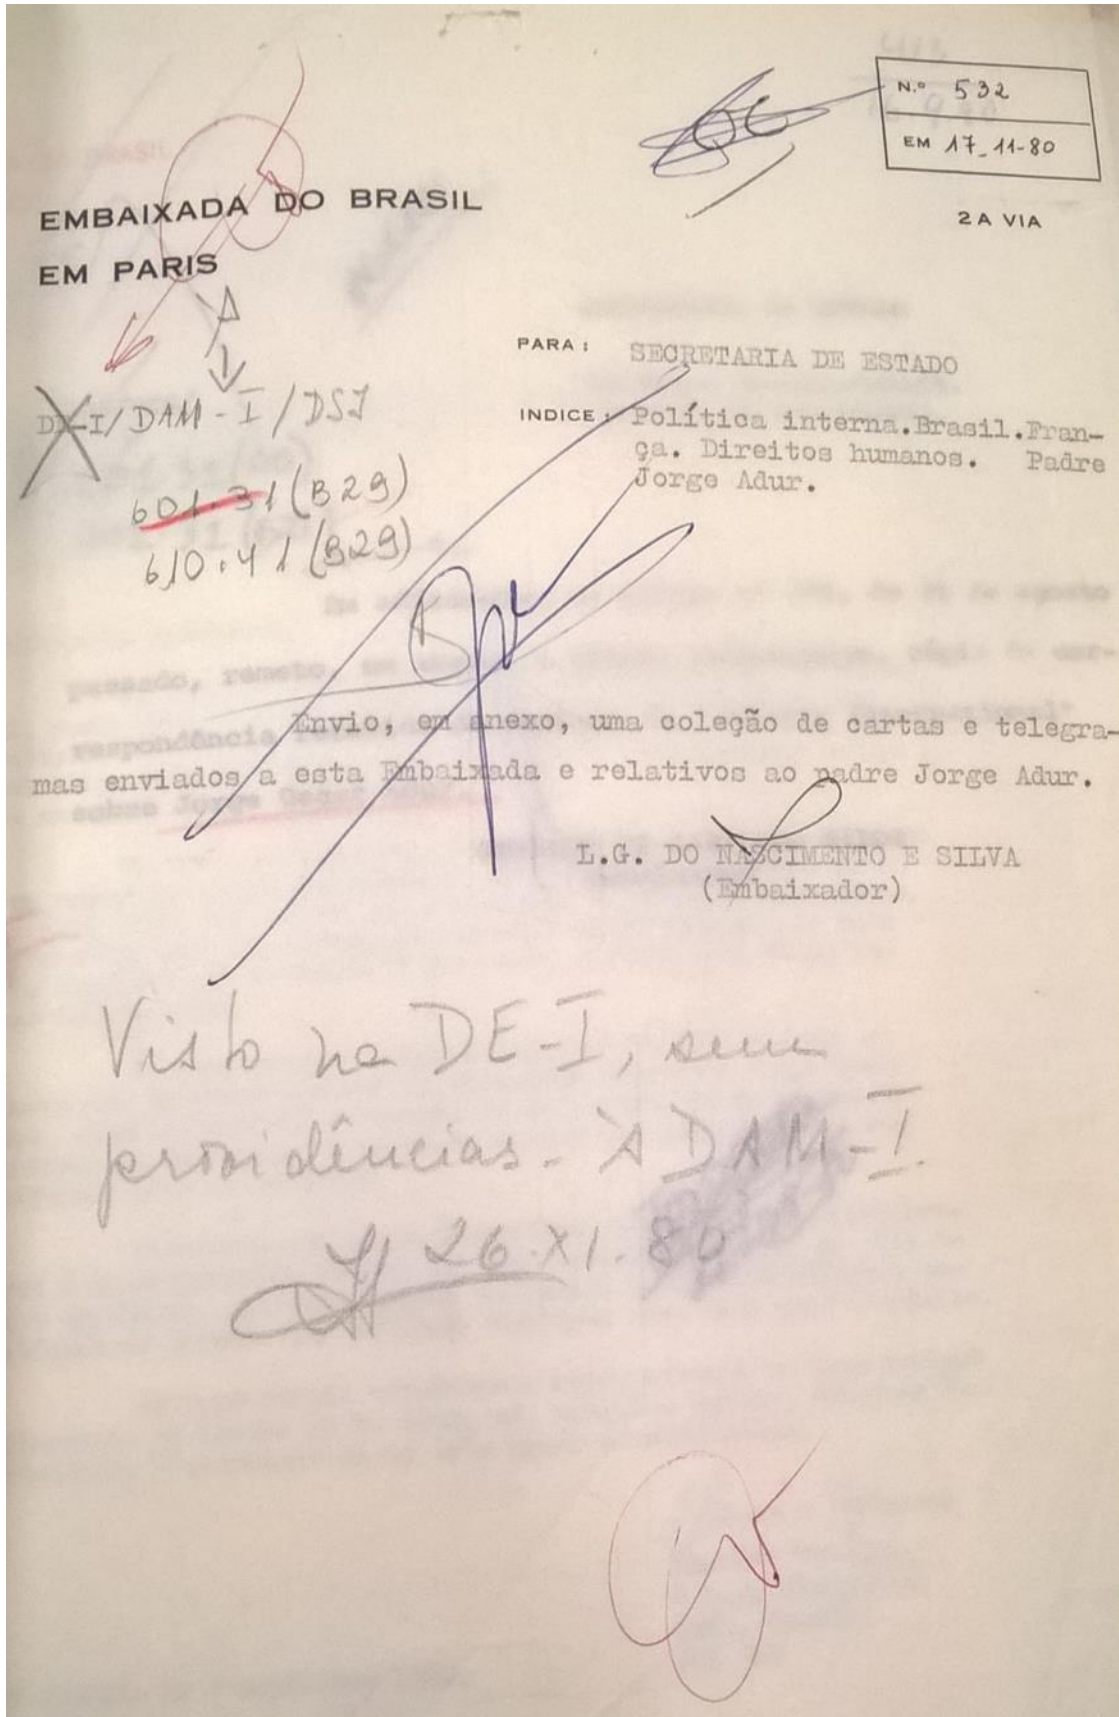 N.º 532
EM 17-11-80
2A VIA
EMBAIXADA DO BRASIL
EM PARIS
PARA: SECRETARIA DE ESTADO
DE-I/DAM-I/DSI
INDICE: Política interna.Brasil.Fran-
ça. Direitos humanos. Padre
Jorge Adur.
601.31 (B29)
610.41 (B29)
Envio, em anexo, uma coleção de cartas e telegra-
mas enviados a esta Embaixada e relativos ao padre Jorge Adur.
L.G. DO NASCIMENTO E SILVA
(Embaixador)
Visto na DE-I, sem
providências. À DAM-I.
26.XI.80